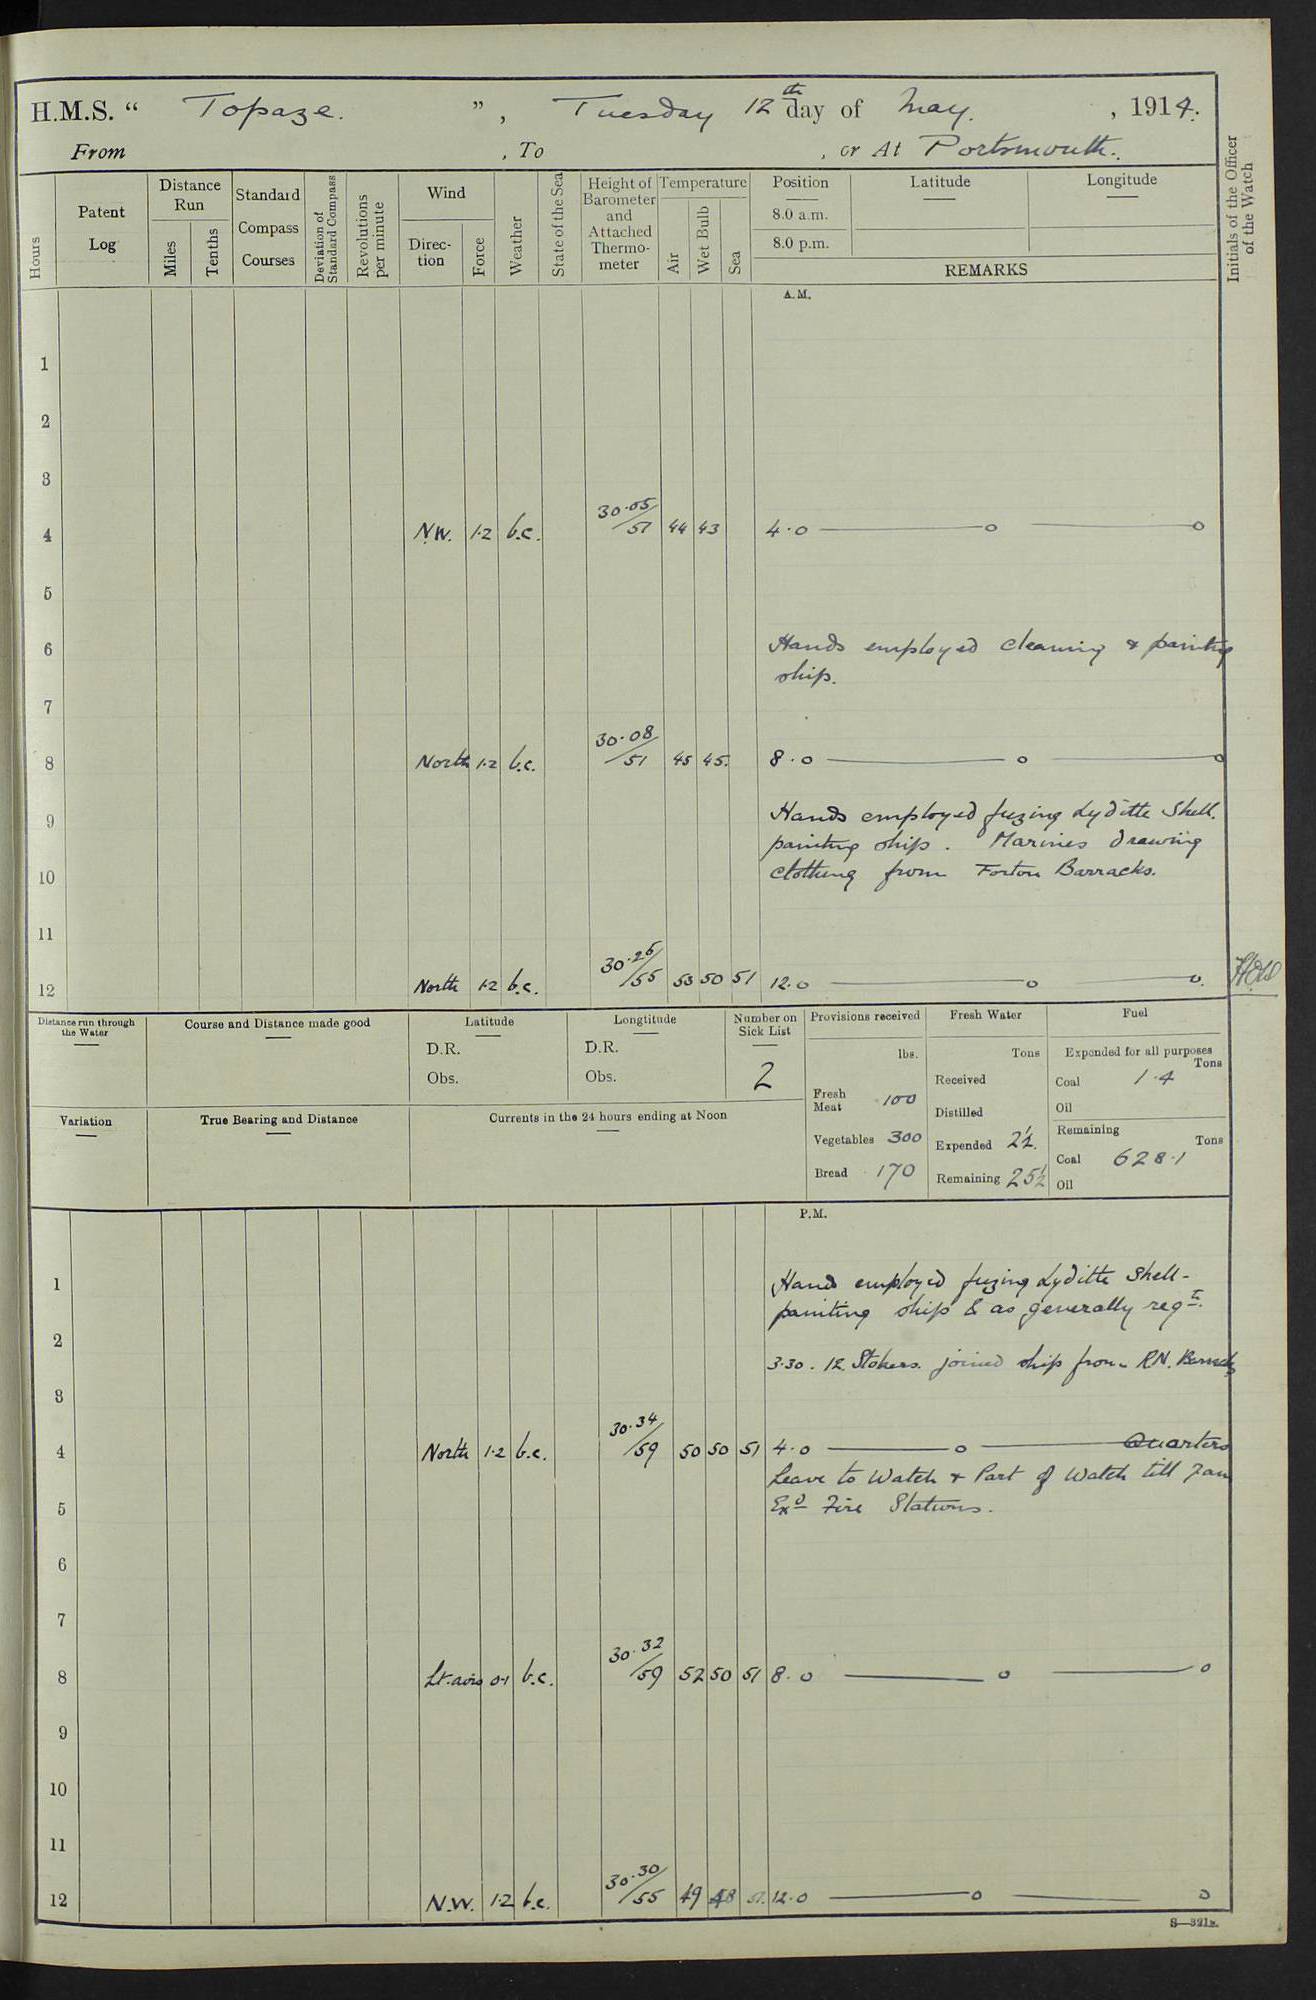 H.M.S. “ Topaze. ”, Tuesday 12th day of May. , 1914.
From , To , or At Portsmouth.
Hours
Patent Log
Distance Run
Miles
Tenths
Standard Compass Courses
Deviation of Standard Compass
Revolutions per minute
Wind
Direc-tion
Force
Weather
State of the Sea
Height of Barometer and Attached Thermo-meter
Temperature
Air
Wet Bulb
Sea
Position
8.0 a.m.
8.0 p.m.
Latitude
Longitude
REMARKS
Initials of the Officer of the Watch
A.M.
1
2
3
4 N.W. 1·2 b.c. 30·05/51 44 43 4·0 —— o —— o
5
6 Hands employed cleaning & painting
ship.
7
8 North 1·2 b.c. 30·08/51 45 45. 8·0 —— o —— o
9 Hands employed fuzing Lyditte Shell.
painting ship. Marines drawing
10 clothing from Forton Barracks.
11
12 North 1·2 b.c. 30·26/55 53 50 51 12·0 —— o —— o.
Distance run through the Water
Course and Distance made good
Latitude
D.R.
Obs.
Longtitude
D.R.
Obs.
Number on Sick List
2
Provisions received
lbs.
Fresh Meat 100
Vegetables 300
Bread 170
Fresh Water
Tons
Received
Distilled
Expended 2½.
Remaining 25½
Fuel
Expended for all purposes
Tons
Coal 1·4
Oil
Remaining
Tons
Coal 628·1
Oil
Variation
True Bearing and Distance
Currents in the 24 hours ending at Noon
P.M.
1 Hands employed fuzing Lyditte Shell -
painting ship & as generally reqte.
2
3·30. 12 Stokers. joined ship from R.N. Barracks
3
4 North 1·2 b.c. 30·34/59 50 50 51 4·0 —— o —— Quarters
Leave to Watch & Part of Watch till 7am
5 Exd Fire Stations.
6
7
8 Lt. airs 0·1 b.c. 30·32/59 52 50 51 8·0 —— o —— o
9
10
11
12 N.W. 1·2 b.c. 30·30/55 49 48 51. 12·0 —— o —— o
S—321E.